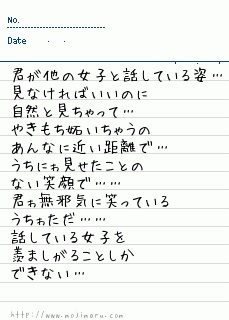 No.
Date . .
君が他の女子と話している姿…
見なければいいのに
自然と見ちゃって…
やきもち妬いちゃうの
あんなに近い距離で…
うちにゎ見せたことの
ない笑顔で……
君ゎ無邪気に笑っている
うちゎただ……
話している女子を
羨ましがることしか
できない…
http://www.mojimaru.com/